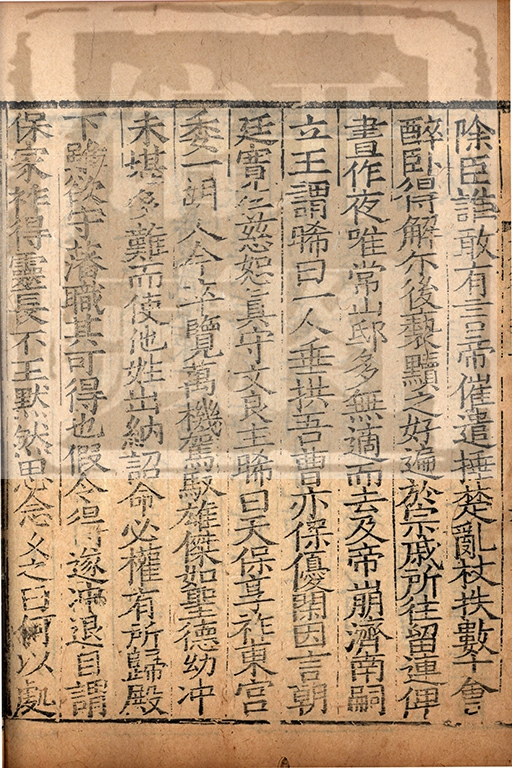 除臣誰敢有言帝催遣捶楚亂杖抶數十會
醉臥得解尓後褻黷之好遍於宗戚所往留連俾
晝作夜唯常山邸多無適而去及帝崩濟南嗣
立王謂晞曰一人垂拱吾曹亦保優閑因言朝
廷寛仁慈恕真守文良主晞曰天保享祚東宮
委一胡人今卒覽萬機駕馭雄傑如聖德幼沖
未堪多難而使他姓出納詔命必權有所歸殿
下雖欲守藩職其可得也假令得遂沖退自謂
保家祚得靈長不王默然思念久之曰何以處